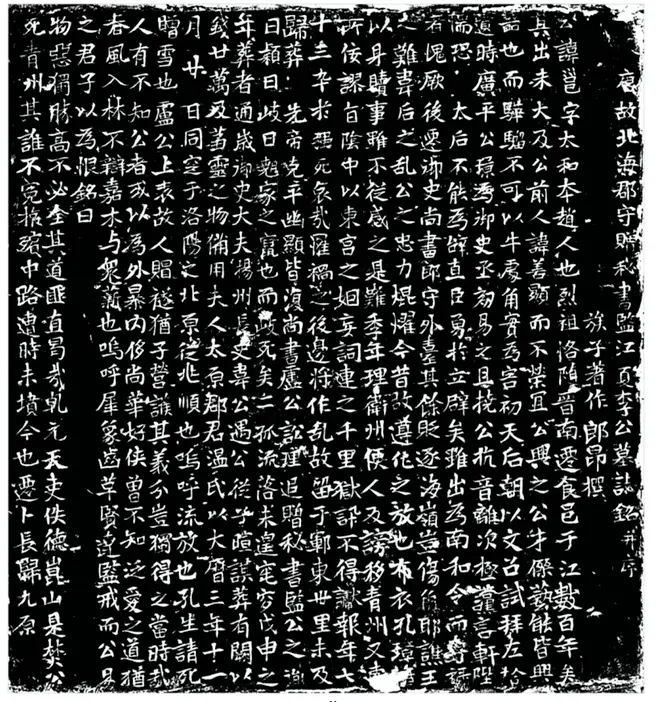 唐故北海郡守贈秘書監江夏李公墓誌銘并序
族子著作郎昂撰
公諱邕字太和本趙人也烈祖恪隨晉南遷食邑于江數百年矣
其出未大及公前人諱善顯而不榮宜公興之公才傑藝能皆興
詣也而驊騮不可以牛處角實為害初天后朝以文召試拜左拾
遺時廣平公璟為御史丞劾易之且撓公抗音離次極讜言軒陛
懦恐太后不能為辭直臣勇於立辟矣雖出為南和令而守詖
者愧厥後遷御史尚書郎守外臺其餘貶逐海嶺豈傷角耶譙王
之難韋后之亂公之忠力焜燿今昔故遵化之放也布衣孔璋請
以身贖事雖不從感之是難季年理衛州便人及謗移青州又連
所佞謬旨陰中以東宮之姻妄詞連之千里獄訊不得讞報年七
十三卒於強死哀哉罹禍之後邊將作亂故留于鄆東卅里未及
歸葬先帝克平幽顯皆復尚書盧公訟理追贈秘書監公之胤
曰穎曰岐曰翹家之寶也而岐死矣二孤流落未遑窀穸戊申之
年葬者通歲御史大夫揚州長史韋公遇公從子暄謀葬有闕以
錢廿萬及芻靈之物備用夫人太原郡君温氏以大曆三年十一
月廿日同窆于洛陽之北原從兆順也嗚呼流放也孔生請死
贈雪也盧公上表故人賵禭猶子營護其義分豈獨得之當時哉
人有不知公者或以為外暴內侈尚華好俠曾不知泛愛之道猶
春風入林不辯嘉木与衆薻也嗚呼犀象齒革賢達監戒而公易
之君子以為恨銘曰
物惡獨勝高不必全其道匪直曷哉乳元天吏佚德崑山是焚公
死青州其誰不冤旅殯中路遭時未墳今也遷卜長歸九原